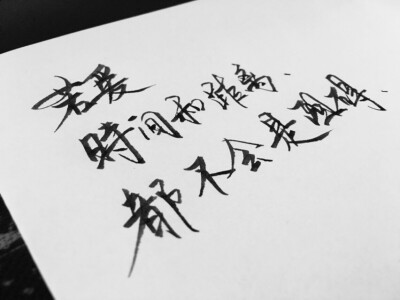 若爱
時间和距離.
都不会是阻碍.